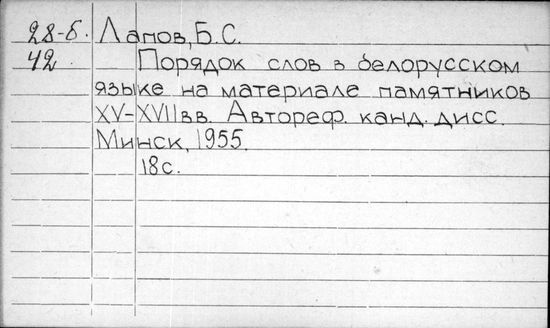 28-б. Лапов, Б.С.
42. Порядок слов в белорусском
языке на материале памятников
XV-XVII вв. Автореф. канд. дисс.
Минск, 1955.
18 с.